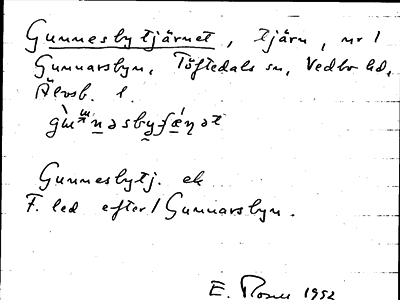 Gunnesbytjärnet, tjärn, nr 1
Gunnarsbyn, Töftedals sn, Vedbo hd,
Älvsb. l.
Gunnesbytj. ek
F. led efter / Gunnarsbyn.
E. 1952